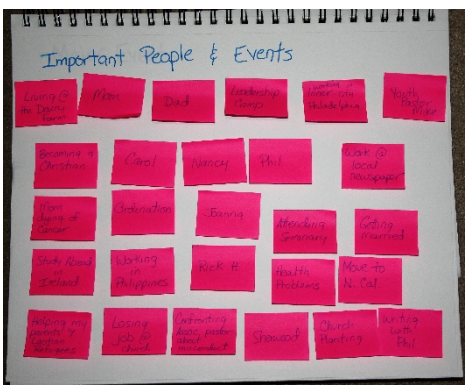 Important People & Events
Living @
the Dairy
Farm
Mom
Dad
Leadership
Camp
Working in
Inner-city
Philadelphia
Youth
Pastor
Mike
Becoming a
Christian
Carol
Nancy
Phil
Work @
local
newspaper
Mom
dying of
Cancer
Ordination
Attending
Seminary
Getting
married
Study Abroad
in
Ireland
Working
in
Philippines
Rick H.
Health
Problems
Move to
N. Cal.
Helping my
parents
Refugees
Losing
job @
church
Confronting
pastor
about
misconduct
Sherwood
Church
Planting
Writing
with
Phil